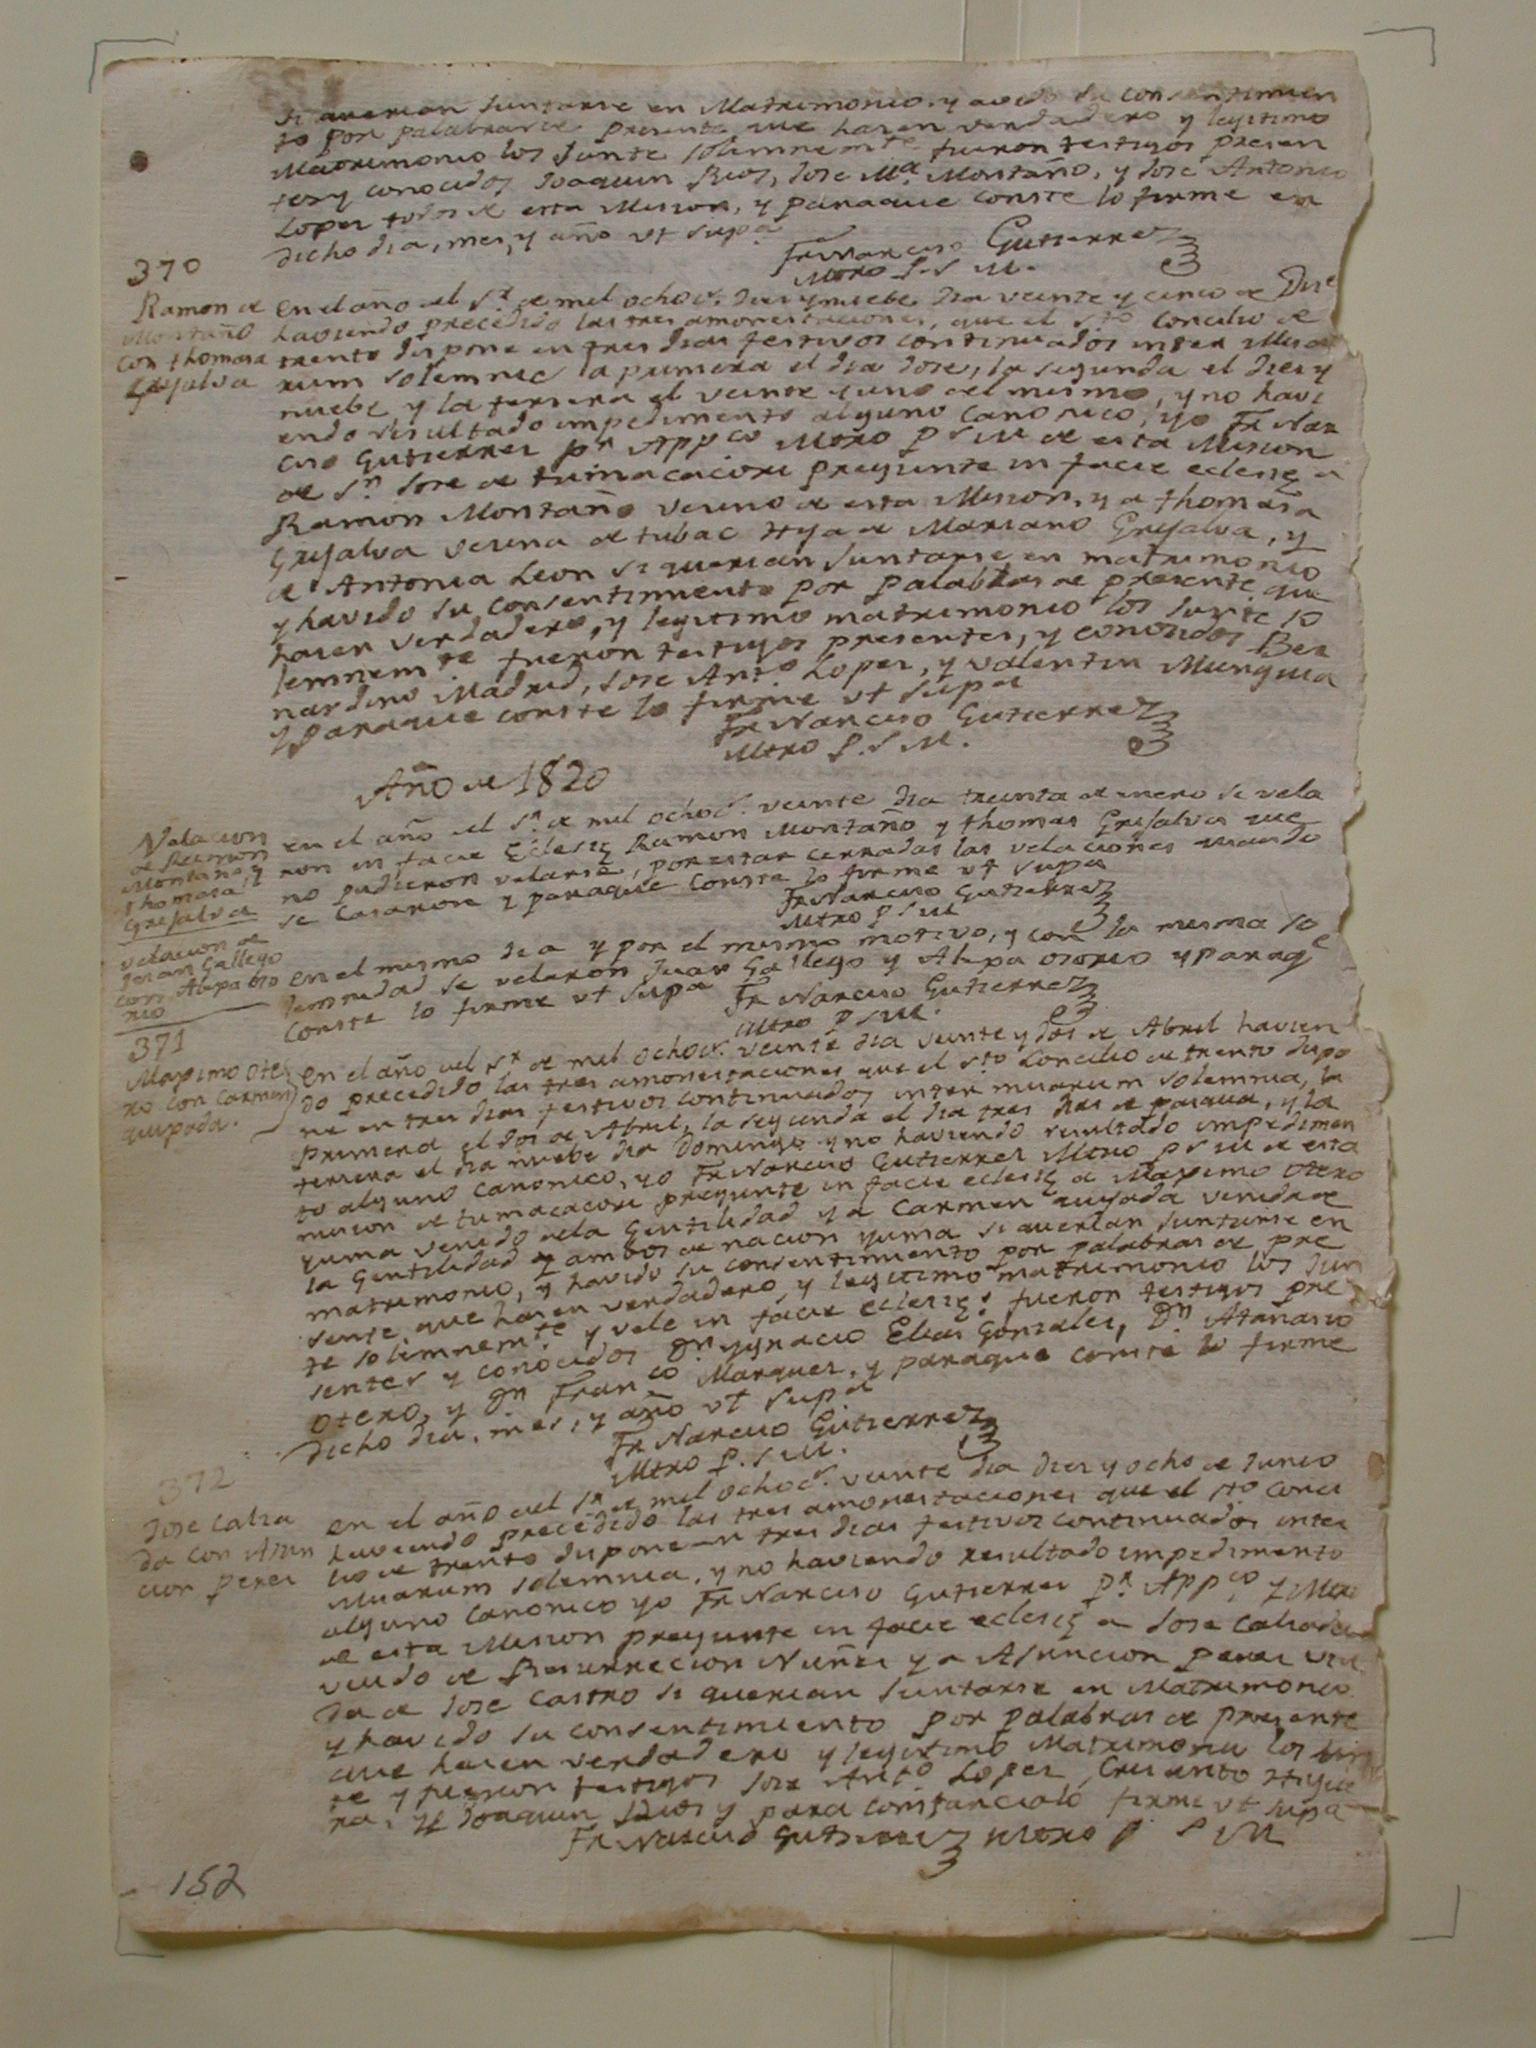 si querian Juntarse en Matrimonio, y avido su consentimien
to por palabras de presente que hasen verdadero y legitimo
Matrimonio los Junte solemnemte fueron testigos presen
tes y conocidos Joaquin Rios, Jose Ma. Montaño, y Jose Antonio
Lopes todos de esta Mision, y paraque conste lo firme en
dicho dia, mes, y año vt supa
Fr Narciso Gutierrez
Mtro P. S M.
370
Ramon de
Montaño
con thomasa
Grijalva
en el año del Sr. de mil ochocs. dies y nuebe dia veinte y cinco de Dize
haviendo precedido las tres amonestaciones, que el Sto Concilio de
trento dispone en tres dias festivos continuados inter Misa
rum solemnia la primera el dia dose, la segunda el dies y
nuebe y la tersera el veinte y uno del mismo, y no havi
endo resultado impedimento alguno canonico, yo Fr Nar
ciso Gutierres Pr. Appco Mtro P S M de esta Mision
de Sn. Jose de tumacacori pregunte in facie eclesię a
Ramon Montaño vecino de esta Mision, y a thomasa
Grijalva vecina de tubac Hija de Mariano Grijalva, y
de Antonia Leon si querian Juntarse en matrimonio
y havido su consentimiento por palabras de presente que
hasen verdadero, y legitimo matrimonio los Junte so
lemnemte fueron testigos presentes, y conosidos Ber
nardino Madrid, Jose Anto. Lopes, y valentin Munguia
y paraque conste lo firme vt supa
Fr Narciso Gutierrez
Mtro P. S M.
Año de 1820
Velacion
de Ramon
Montaño, y
thomasa
Grijalva
en el año del Sr. de mil ochocs. veinte dia treinta de enero se vela
ron in facie Eclesię Ramon Montaño y thomasa Grijalva que
no pudieron velarse, por estar cerradas las velaciones quando
se casaron y paraque conste lo firme vt supa
Fr Narciso Gutierrez
Mtro P S M
velacion de
Juan Gallego
con Alipa oso
rio
en el mismo dia y por el mismo motivo, y con la mesma so
lemnidad se velaron Juan Gallego y Alipa osorio y paraqe
conste lo firme vt supa
Fr Narciso Gutierrez
Mtro P S M.
371
Maximo ote
ro con Carmen
quijada.
en el año del Sr. de mil ochocs. veinte dia veinte y dos de Abril havien
do precedido las tres amonestaciones que el Sto Concilio de trento dispo
ne en tres dias festivos continuados inter misarum solemnia, la
primera el dos de Abril, la segunda el dia tres dias de pasqua, y la
tersera el dia nuebe dia Domingo y no haviendo resultado impedimen
to alguno canonico, yo Fr Narciso Gutierrez Mtro P S M de esta
mision de tumacacori pregunte in facie eclesię a Maximo Otero
yuma venido de la Gentilidad y a Carmen quijada venida de
la Gentilidad y ambos de nacion yuma si querian Juntarse en
matrimonio, y havido su consentimiento por palabras de pre
sente que hasen verdadero, y legitimo matrimonio los Jun
te solemnemte y vele in facie eclesię: fueron testigos pre
sentes y conocidos Dn Ygnacio Elias Gonzales, Dn Atanasio
Otero, y Dn Franco Marques, y paraque conste lo firme
dicho dia, mes, y año vt supa
Fr Narciso Gutierrez
Mtro P. S M.
372
Jose Calsa
da con Asun
cion peres
en el año del Sr de mil ochocs. veinte dia dies y ocho de Junio
haviendo precedido las tres amonestaciones que el Sto Conci
lio de trento dispone en tres dias festivos continuados inter
Misarum solemnia, y no haviendo resultado impedimento
alguno canonico yo Fr Narciso Gutierres Pr. Appco, y Mtro
de esta Mision pregunte in facie eclesię a Jose Calsada
viudo de Resurreccion Nuñes y a Asuncion peres viu
da de Jose Castro si querian Juntarse en Matrimonio
y havido su consentimiento por palabras de presente
que hasen verdadero y legitimo Matrimonio los Jun
te y fueron testigos Jose Anto Lopes, Cresento Higue
ra, y Joaquin Rios y para constancia lo firme vt supa
Fr Narciso Gutierrez Mtro P S M
152